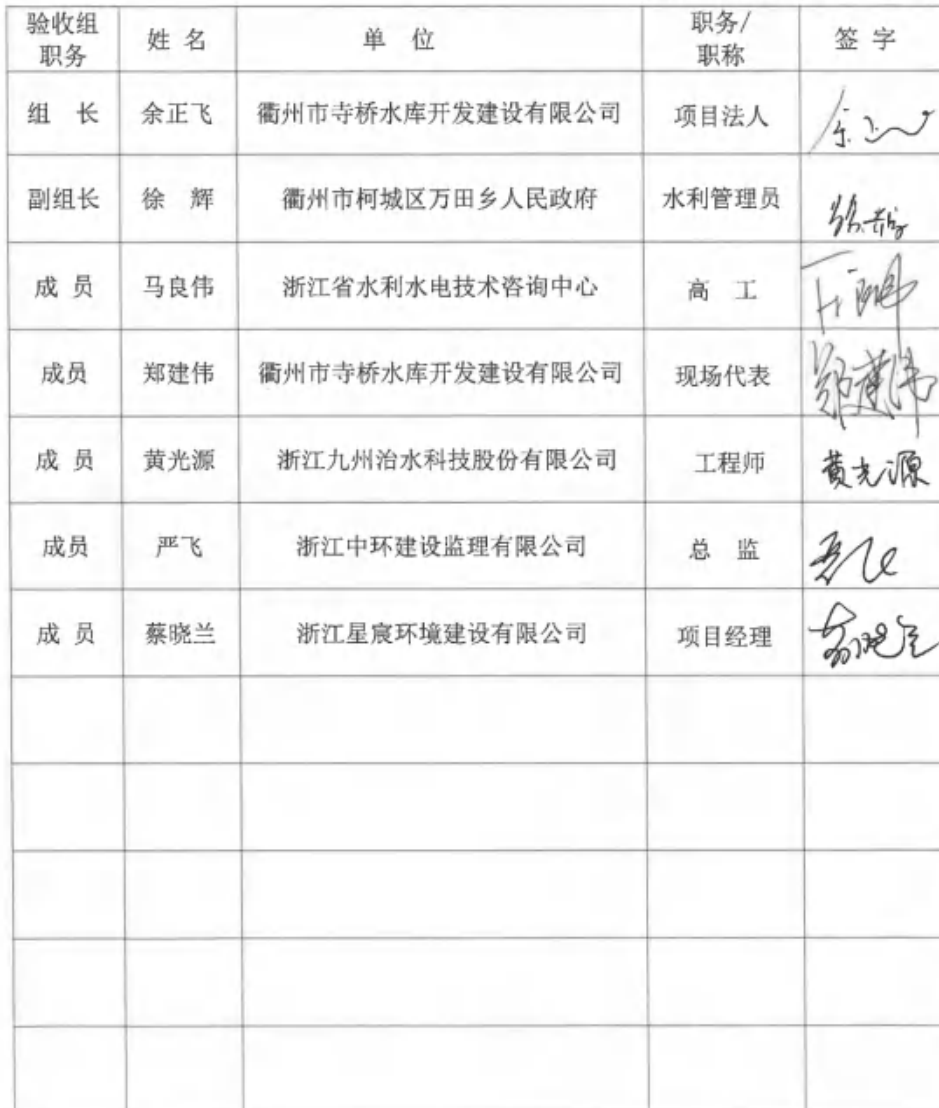 验收组职务 姓 名 单 位 职务/职称 签 字
组 长 余正飞 衢州市寺桥水库开发建设有限公司 项目法人
副组长 徐 辉 衢州市柯城区万田乡人民政府 水利管理员
成 员 马良伟 浙江省水利水电技术咨询中心 高 工
成员 郑建伟 衢州市寺桥水库开发建设有限公司 现场代表 郑建伟
成 员 黄光源 浙江九州治水科技股份有限公司 工程师 黄光源
成员 严飞 浙江中环建设监理有限公司 总 监
成 员 蔡晓兰 浙江星宸环境建设有限公司 项目经理